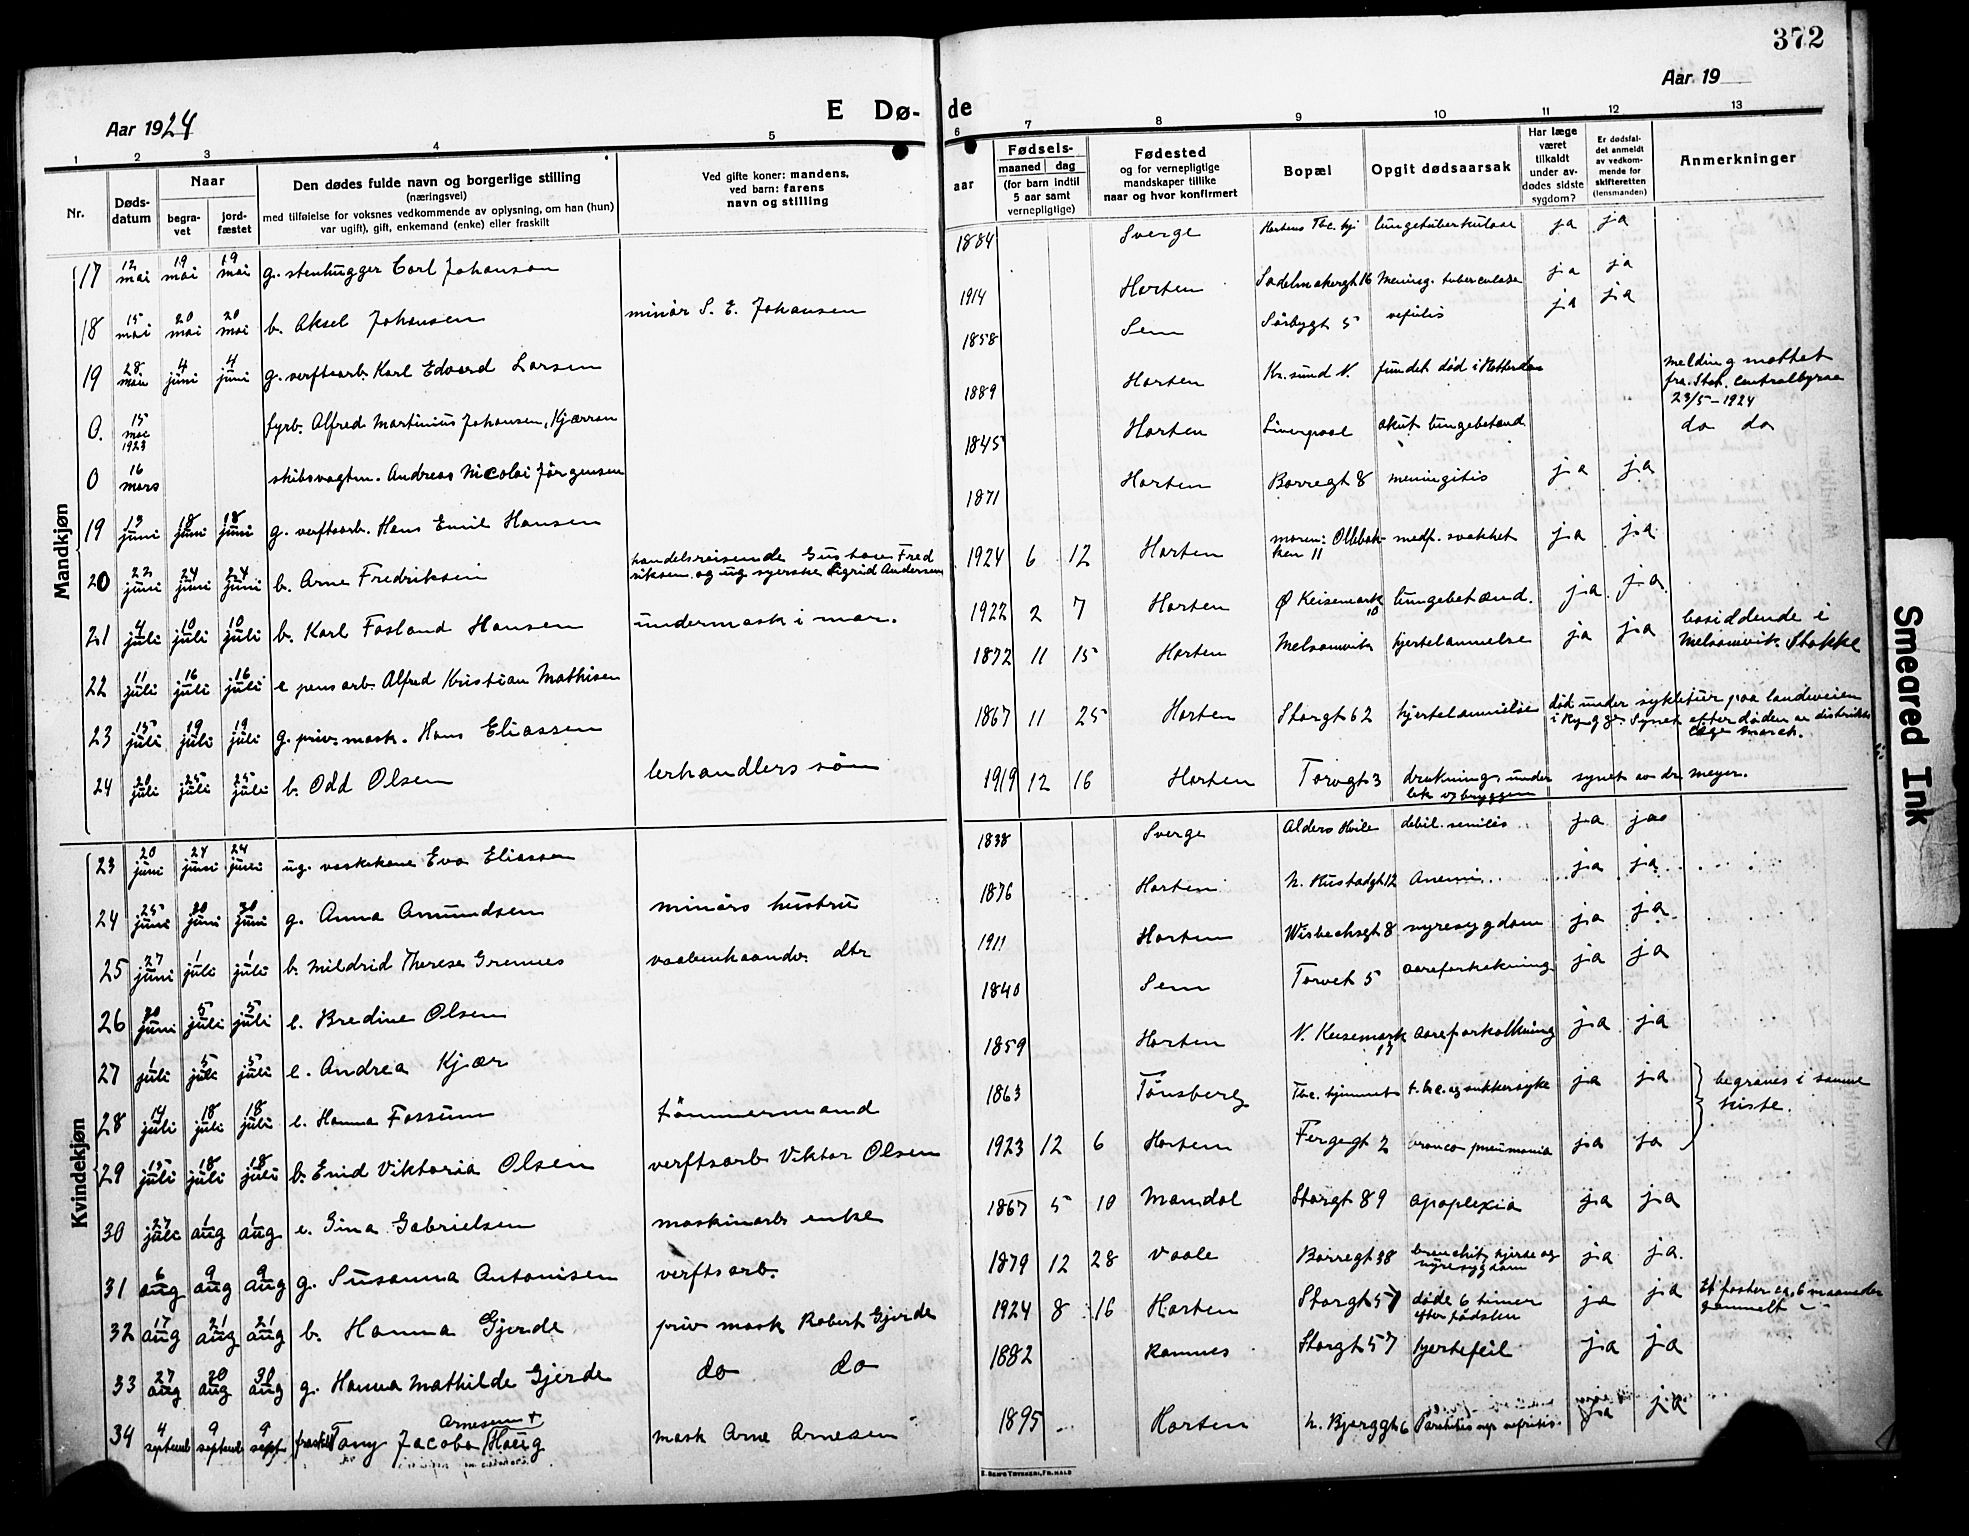 372
Aar 1924
E Dø-
de
Aar 19
1 2 3 4 5 6 7 8 9 10 11 12 13
Nr.
Døds-
datum
Naar
begra-
vet
jord-
fæstet
Den dødes fulde navn og borgerlige stilling
(næringsvei)
med tilføielse for voksnes vedkommende av oplysning, om han (hun)
var ugift), gift, enkemand (enke) eller fraskilt
Ved gifte koner: mandens,
ved barn: farens
navn og stilling
aar
Fødsels-
maaned dag
(for barn indtil
5 aar samt
vernepligtige)
Fødested
og for vernepligtige
mandskaper tillike
naar og hvor konfirmert
Bopæl
Opgit dødsaarsak
Har læge
været
tilkaldt
under av-
dødes sidste
sygdom?
Er dødsfal-
det anmeldt
av vedkom-
mende for
skifteretten
(lensmanden)
Anmerkninger
Mandkjøn
17 12 mai 19 mai 19 mai g. stenhugger Carl Johanson 1884 Sverge Hortens Tbc. hj. lungetuberkulose ja ja
18 15 mai 20 mai 20 mai b. Aksel Johansen minör S. E. Johansen 1914 Horten Sadelmakergt 16 Mening. tuberculosa ja ja
19 28 mai 4 juni 4 juni g. verftsarb. Karl Edvard Larsen 1858 Sem Sörbygt 5 ja ja
0. 15 1923 fyrb. Alfred Martinius Johansen, Kjærran 1889 Horten Kr.sund N. fundet död i Rotterdam melding mottat
fra Stat. Centralbyraa
23/5-1924
0 16 mars skibsvagtm. Andreas Nicolai Jörgensen 1845 Horten Liverpool akut lungebetænd do do
19 13 juni 18 juni 18 juni g. verftsarb. Hans Emil Hansen 1871 Horten Borregt 8 meningitis ja ja
20 22 juni 24 juni 24 juni b. Arne Fredriksen handelsreisende Gustav Fred
riksen og ug syerske Sigrid Andersen 1924 6 12 Horten moren: Ollebak-
ken 11 medf. svakhet ja ja
21 4 juli 10 juli 10 juli b. Karl Fosland Hansen undermask i mar. 1922 2 7 Horten Ø Keisemark 10 lungebetænd. ja ja
22 11 juli 16 juli 16 juli e pens arb. Alfred Kristian Mathisen 1872 11 15 Horten Melsomvik hjertelammelse ja ja bosiddende i
Melsomvik. Stokke
23 15 juli 19 juli 19 juli g. priv. mask. Hans Eliassen 1867 11 25 Horten Storgt 62 hjertelammelse död under sykletur paa landeveien
i Rygge. Synet efter döden av distrikts
læge March.
24 20 juli 25 juli 25 juli b. Odd Olsen lerhandlers sön 1919 12 16 Horten Torvgt 3 drukning under
lek v/ bryggen synet av dr meyer.
Kvindekjøn
23 20 juni 24 juni 24 juni ug. vaskekone Eva Eliassen 1838 Sverge Alders Hvile debil. senilis ja ja
24 25 juni 30 juni 30 juni g. Anna Amundsen minörs hustru 1876 Horten N. Rustadgt 12 Anemi ja ja
25 27 juni 1 juli 1 juli b. Mildrid Therese Grennes vaabenhaandv. dtr 1911 Horten Wisbechsgt 8 nyresygdom ja ja
26 30 juni 5 juli 5 juli e. Bredine Olsen 1840 Sem Torvet 5 aareforkalkning ja ja
27 1 juli 5 juli 5 juli e. Andrea Kjær 1859 Horten N. Keisemark 17 aareforkalkning ja ja
28 14 juli 18 juli 18 juli e. Hanna Fossum tömmermand 1863 Tönsberg Tbc. hjemmet t.b.c. og sukkersyke ja ja begraves i samme
kiste.
29 15 juli 18 juli 18 juli b. Enid Viktoria Olsen verftsarb Viktor Olsen 1923 12 6 Horten Fergegt 2 bronco pneumonia ja ja
30 27 juli 1 aug 1 aug e. Gina Gabrielsen maskinarb enke 1867 5 10 Mandal Storgt 89 apoplexia ja ja
31 6 aug 9 aug 9 aug g. Susanna Antonisen verftsarb. 1879 12 28 Vaale Borregt 38 bronchit, hjerte og
nyresygdom ja ja
32 17 aug 21 aug 21 aug b. Hanna Gjerde priv mask Robert Gjerde 1924 8 16 Horten Storgt 57 döde 6 timer
efter födselen ja ja Et foster ca. 6 maaneder
gammelt
33 27 aug 30 aug 30 aug g. Hanna Mathilde Gjerde do do 1882 Ramnes Storgt 57 hjertefeil ja ja
34 4 septemb 9 septemb 9 sept fraskilt Tany Jacoba Arnesen + (Haug mask Arne Arnesen 1895 Horten N. Bjerggt 6 ja ja
E. SEM'S TRYKKERI, FR.HALD
Smeared Ink